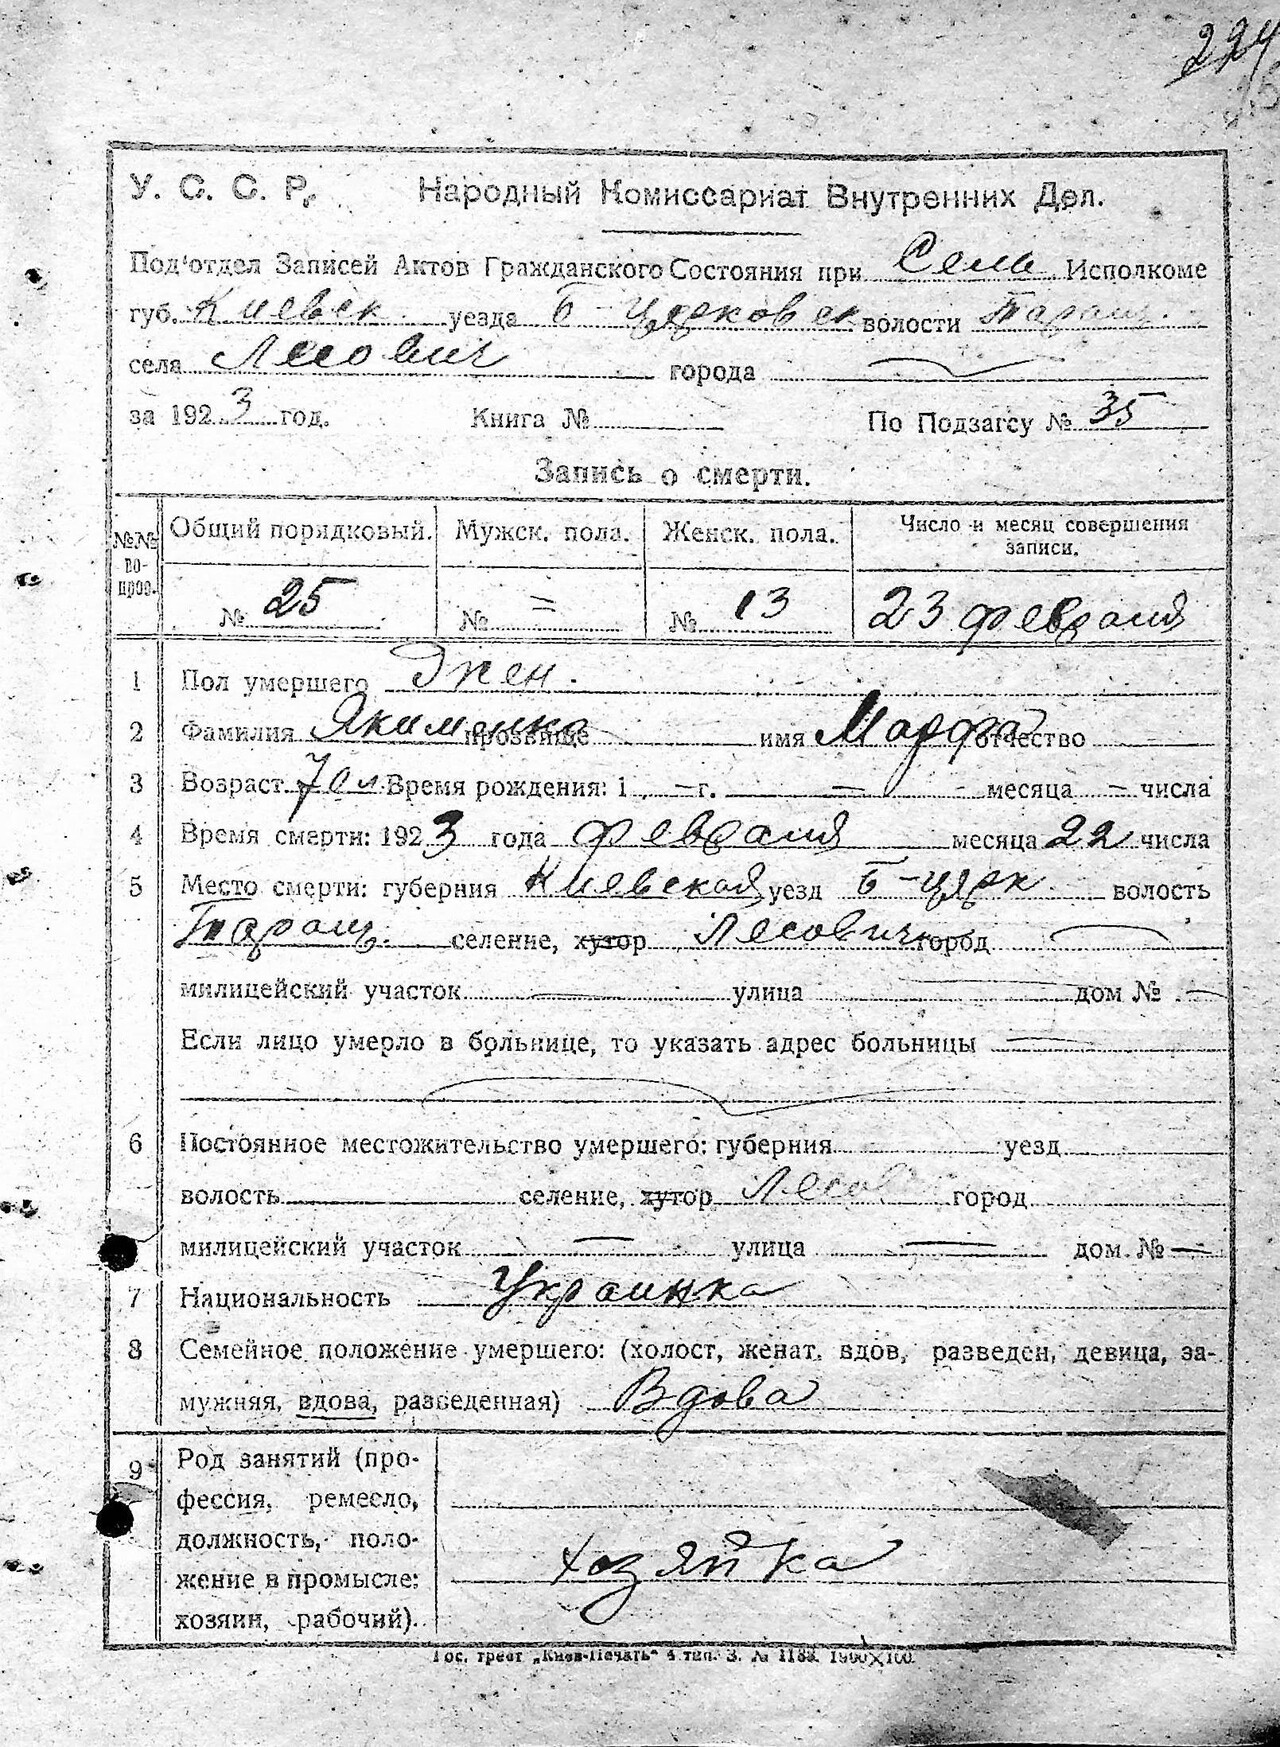 224
У. С. С. Р. Народный Комиссариат Внутренних Дел.
Под'отдел Записей Актов Гражданского Состояния при Сель Исполкоме
губ. Киевск. уезда Б-Церковск волости Таращ.
села Лесович города
за 1923 год. Книга № По Подзагсу № 35
Запись о смерти.
№№ во- прос. Общий порядковый. Мужск. пола. Женск. пола. Число и месяц совершения записи.
№ 25 № = № 13 23 февраля
1 Пол умершего Жен.
2 Фамилия Якименко прозвище имя Марфа отчество
3 Возраст 70 л Время рождения: 1 – г. – месяца – числа
4 Время смерти: 1923 года февраля месяца 22 числа
5 Место смерти: губерния Киевская уезд Б-церк. волость
Таращ. селение, хутор Лесович город
милицейский участок — улица — дом № —
Если лицо умерло в больнице, то указать адрес больницы —
6 Постоянное местожительство умершего: губерния уезд
волость селение, хутор Лесов город
милицейский участок — улица — дом № —
7 Национальность Украинка
8 Семейное положение умершего: (холост, женат, вдов, разведен, девица, за-
мужняя, вдова, разведенная) Вдова
9 Род занятий (про-
фессия, ремесло,
должность, поло-
жение в промысле:
хозяин, рабочий).
хозяйка
Гос. трест „Киев-Печать“ 4 тип. З. № 1183. 1900×100.